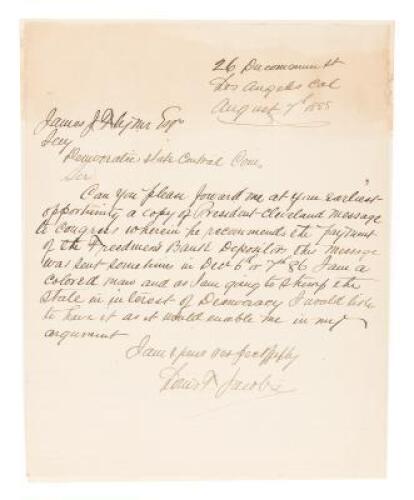 26 Ducommun st
Los Angeles Cal
August 7th 1888
James J. Esqr
Secy
Democratic State Central Com,
Sir
Can you please foward me at your earliest
opportunity a copy of President Cleveland message
to Congress wherein he recommends the payment
of the Freedmen's Bank Depositors, this message
was sent sometimes in Decr 6th or 7th 86 I am a
colored man and as I am going to stump the
State in interest of Democracy I would like
to have it as it would enable me in my
argument
I am yours respectfully
Jacobs